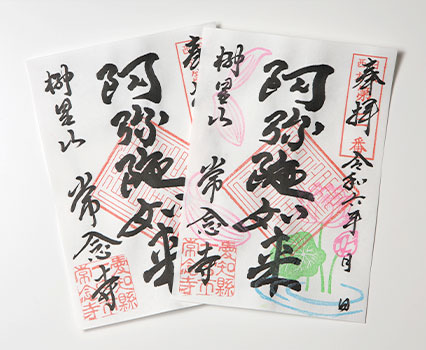 奉拝
令和六年 月 日
阿弥陀如来
常念寺
愛知縣
常念寺
番
奉
阿弥陀如来
常念寺
愛知縣
常念寺